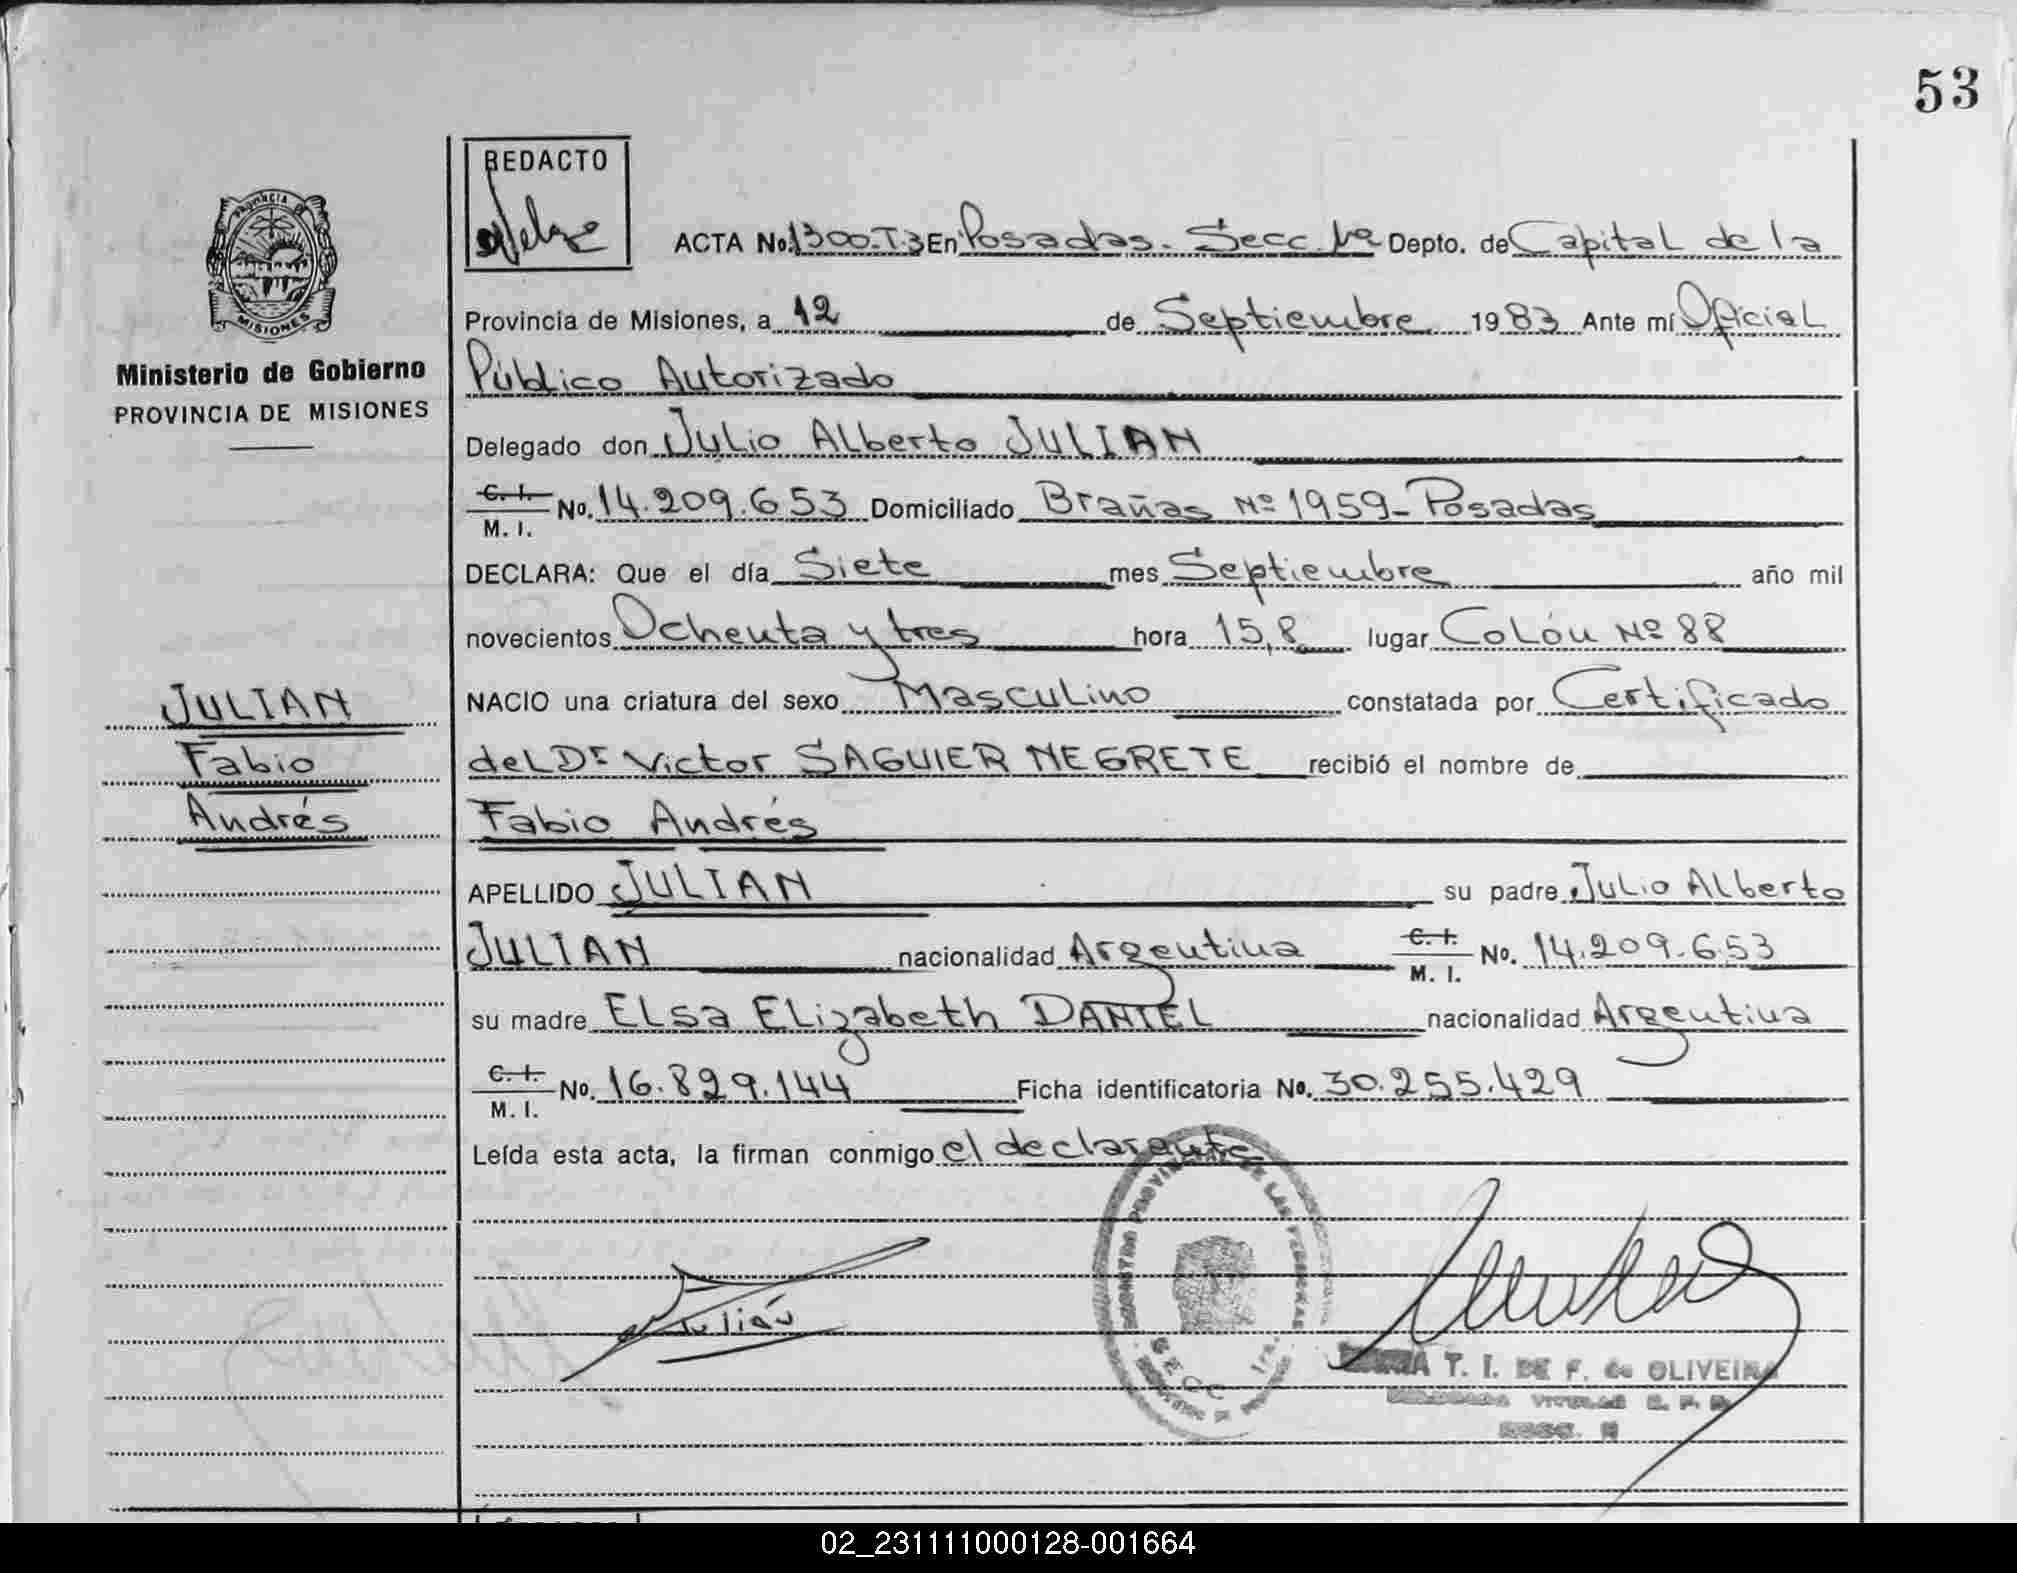 53
REDACTO
PROVINCIA DE
MISIONES
Ministerio de Gobierno
PROVINCIA DE MISIONES
ACTA No. 1300-T.3 En Posadas. Secc 1ra Depto. de Capital de la
Provincia de Misiones, a 12 de Septiembre 1983 Ante mí Oficial
Público Autorizado
Delegado don Julio Alberto JULIAN
C. I. M. I. No. 14.209.653 Domiciliado Brañas Nº 1959-Posadas
DECLARA: Que el día Siete mes Septiembre año mil
novecientos Ochenta y tres hora 15,8 lugar Colón Nº 88
NACIO una criatura del sexo Masculino constatada por Certificado
del Dr Victor SAGUIER NEGRETE recibió el nombre de
Fabio Andrés
APELLIDO JULIAN su padre Julio Alberto
JULIAN nacionalidad Argentina C. I. M. I. No. 14.209.653
su madre Elsa Elizabeth DANIEL nacionalidad Argentina
C. I. M. I. No. 16.829.144 Ficha identificatoria No. 30.255.429
Leída esta acta, la firman conmigo el declarante
JULIAN
Fabio
Andrés
Julián
REGISTRO PROVINCIAL DE LAS PERSONAS
SECC 1ra.
T. I. DE F. de OLIVEIRA
02_231111000128-001664